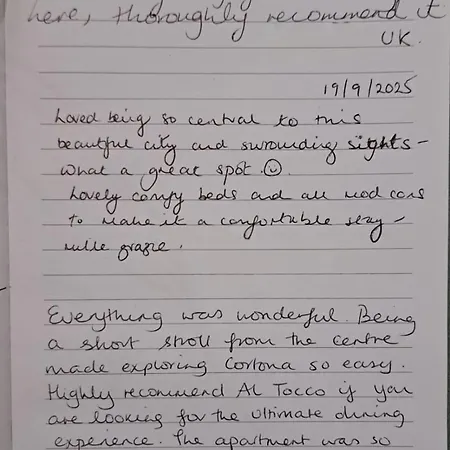 here, thoroughly recommend it
UK.
19/9/2025
Loved being so central to this
beautiful city and surrounding sights –
what a great spot ☺.
Lovely comfy beds and all mod cons
to make it a comfortable stay –
mille grazie.
Everything was wonderful. Being
a short stroll from the centre
made exploring Cortona so easy.
Highly recommend Al Tocco if you
are looking for the ultimate dining
experience. The apartment was so